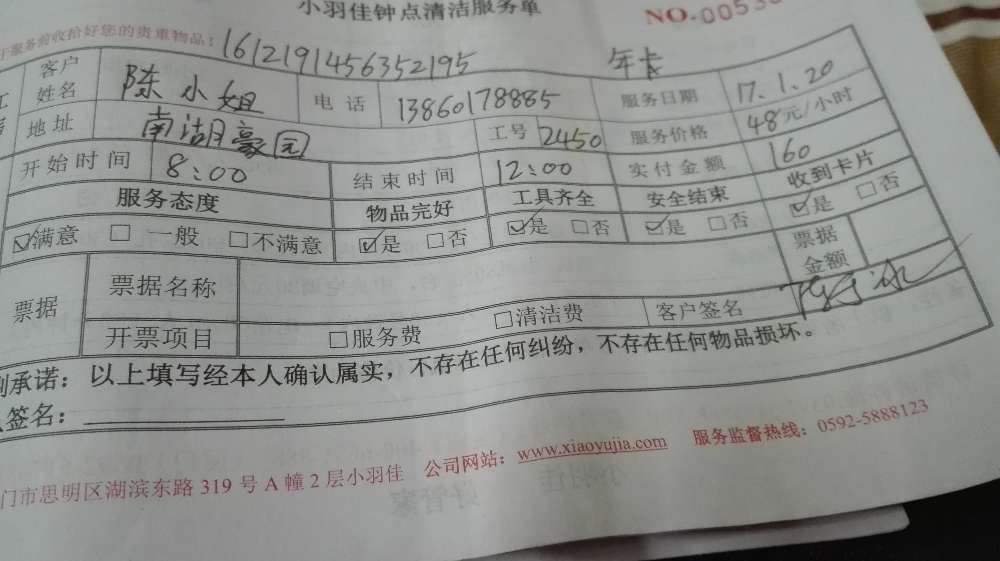 小羽佳钟点清洁服务单
NO.0053
于服务前收拾好您的贵重物品: 1612191456352195 年卡
客户姓名 陈小姐 电话 13860178885 服务日期 17.1.20
地址 南湖豪园 工号 2450 服务价格 48元/小时
开始时间 8:00 结束时间 12:00 实付金额 160
服务态度 物品完好 工具齐全 安全结束 收到卡片
☑满意 □一般 □不满意 ☑是 □否 ☑是 □否 ☑是 □否 ☑是 □否
票据 票据名称 票据金额
开票项目 □服务费 □清洁费 客户签名
承诺: 以上填写经本人确认属实，不存在任何纠纷，不存在任何物品损坏。
签名:
门市思明区湖滨东路 319 号 A 幢 2 层小羽佳 公司网站: www.xiaoyujia.com 服务监督热线: 0592-5888123